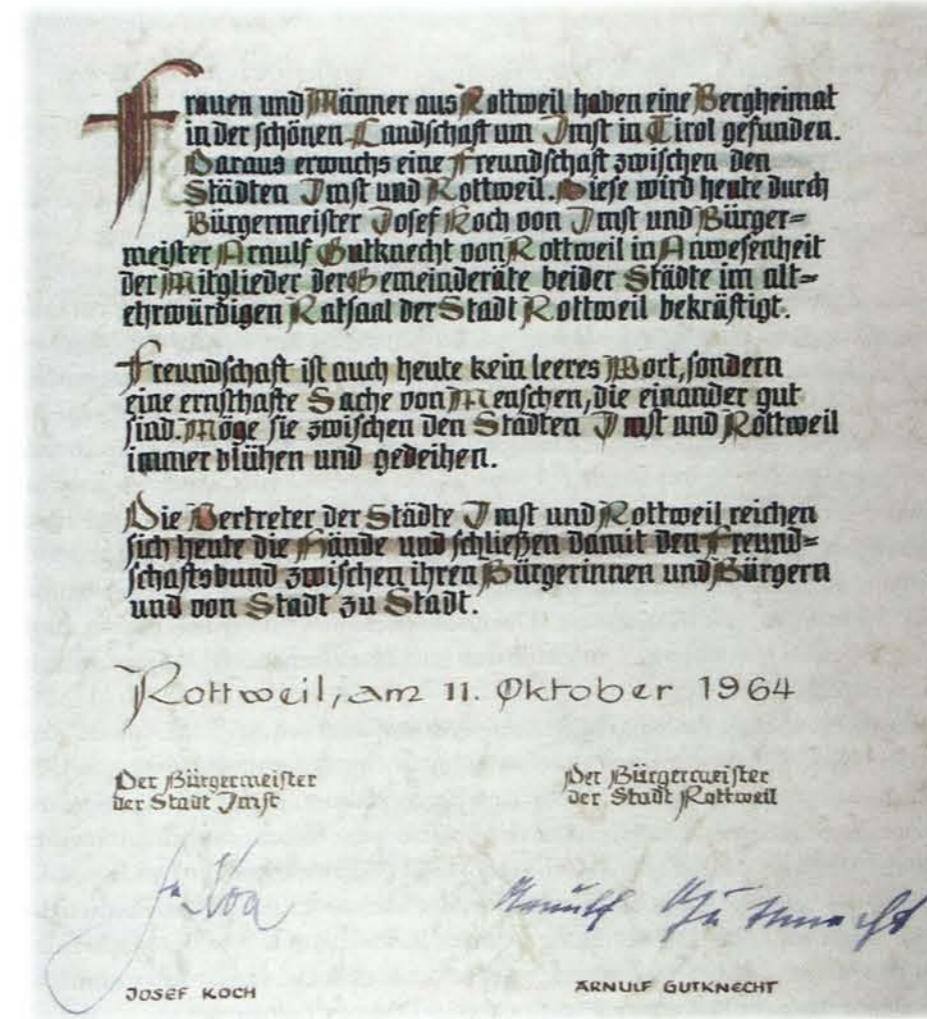 Frauen und Männer aus Rottweil haben eine Bergheimat
in der schönen Landschaft um Imst in Tirol gefunden.
Daraus erwuchs eine Freundschaft zwischen den
Städten Imst und Rottweil. Diese wird heute durch
Bürgermeister Josef Koch von Imst und Bürger=
meister Arnulf Gutknecht von Rottweil in Anwesenheit
der Mitglieder der Gemeinderäte beider Städte im alt=
ehrwürdigen Ratsaal der Stadt Rottweil bekräftigt.
Freundschaft ist auch heute kein leeres Wort, sondern
eine ernsthafte Sache von Menschen, die einander gut
sind. Möge sie zwischen den Städten Imst und Rottweil
immer blühen und gedeihen.
Die Vertreter der Städte Imst und Rottweil reichen
sich heute die Hände und schließen damit den Freund=
schaftsbund zwischen ihren Bürgerinnen und Bürgern
und von Stadt zu Stadt.
Rottweil, am 11. Oktober 1964
Der Bürgermeister
der Stadt Imst
Der Bürgermeister
der Stadt Rottweil
Arnulf Gutknecht
JOSEF KOCH
ARNULF GUTKNECHT